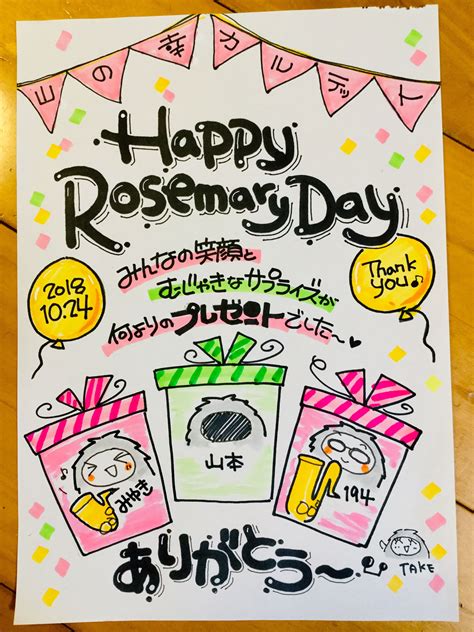 山の幸カルテット
Happy
Rosemary Day
2018
10.24
Thank
you♪
みんなの笑顔と
むじゃきなサプライズが
何よりのプレゼントでした〜♥
みゆき
山本
194
ありがとう〜
TAKE